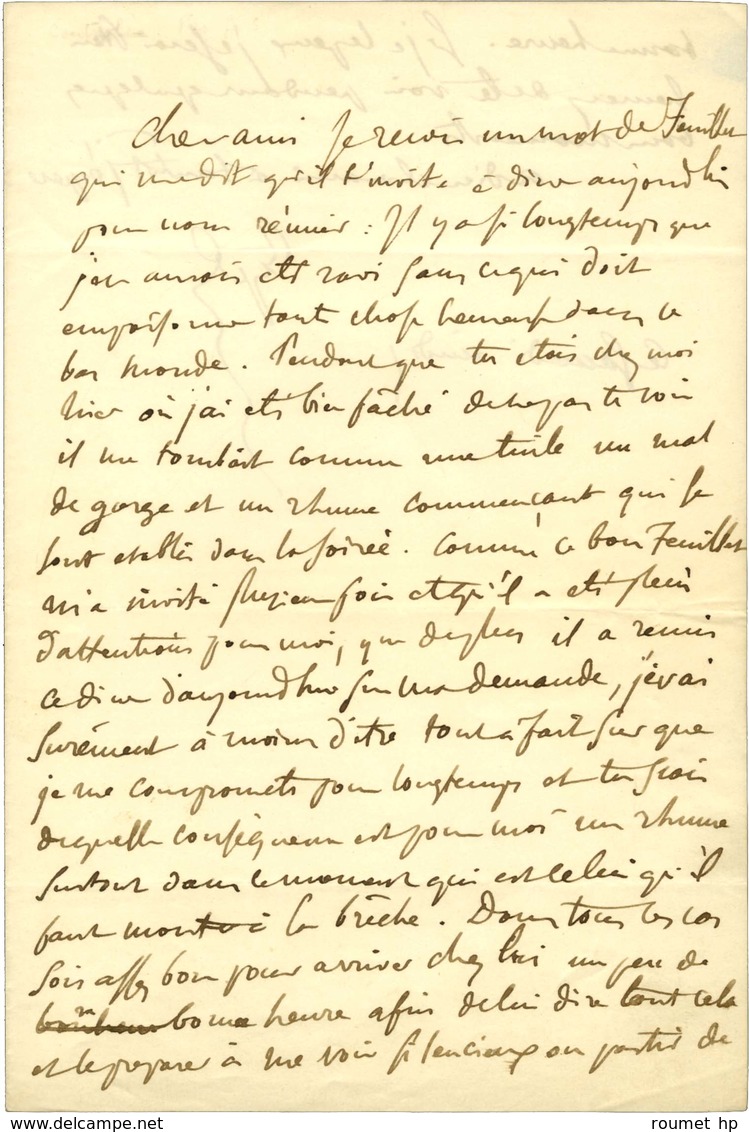 Cher ami Je reçois un mot de Feuillet
qui me dit qu'il t'invite à diner aujourdhui
pour nous réunir : Il y a si longtemps que
j'en aurais été ravi sans ce qui doit
empoisonner toute chose heureuse dans ce
bas monde. Pendant que tu étais chez moi
hier où j'ai été bien fâché de ne pas te voir
il me tombait comme une tuile un mal
de gorge et un rhume commençant qui se
sont etablis dans la soirée. Comme ce bon Feuillet
m'a invité plusieurs fois et qu'il a été plein
d'attentions pour moi, que de plus il a remis
ce diner d'aujourdhui sur ma demande, j'irai
surément à moins d'être tout à fait sur que
je me compromets pour longtemps et tu sais
de quelle conséquence est pour moi un rhume
surtout dans le moment qui est celui qu'il
faut monter à la brèche. Dans tous les cas
sois assez bon pour arriver chez lui un peu de
bonne heure afin de lui dire tout cela
et le preparer à me voir silencieux ou partir de
roumet hp